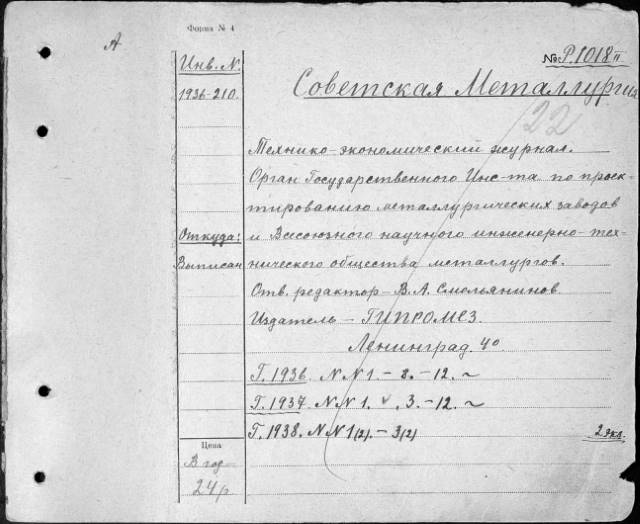 Форма № 4
А
Инв. N.
1936-210.
№ Р.1018 II
Советская Металлургия
22
Технико-экономический журнал.
Орган Государственного Инс-та по проек-
тированию металлургических заводов
Откуда:
и Всесоюзного научного инженерно-тех-
Выписан
нического общества металлургов.
Отв. редактор – В.А. Смольянинов
Издатель – ГИПРОМЕЗ.
Ленинград. 40.
Г. 1936. N N 1. – 2. – 12. ~
Г. 1937. N N 1. v. 3. – 12. ~
Г. 1938. N N 1(2). – 3(2)
2 экз.
Цена
В год
24 р